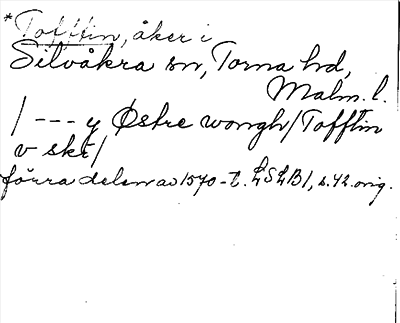 *Tofftin, åker i
Silvåkra sn, Torna hd,
Malm. l.
/ --- y Østre wongh/Tofftin
v skt/
förra delen av 1570-t. LSLB1, s. 42. orig.